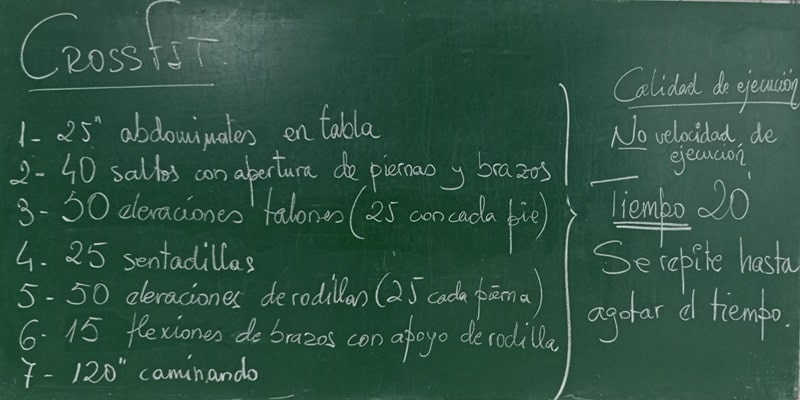 CROSSFIT
1- 25" abdominales en tabla
2- 40 saltos con apertura de piernas y brazos
3- 50 elevaciones talones (25 con cada pie)
4- 25 sentadillas
5- 50 elevaciones de rodillas (25 cada pierna)
6- 15 flexiones de brazos con apoyo de rodilla
7- 120" caminando
Calidad de ejecución
No velocidad de
ejecución
Tiempo 20'
Se repite hasta
agotar el tiempo.